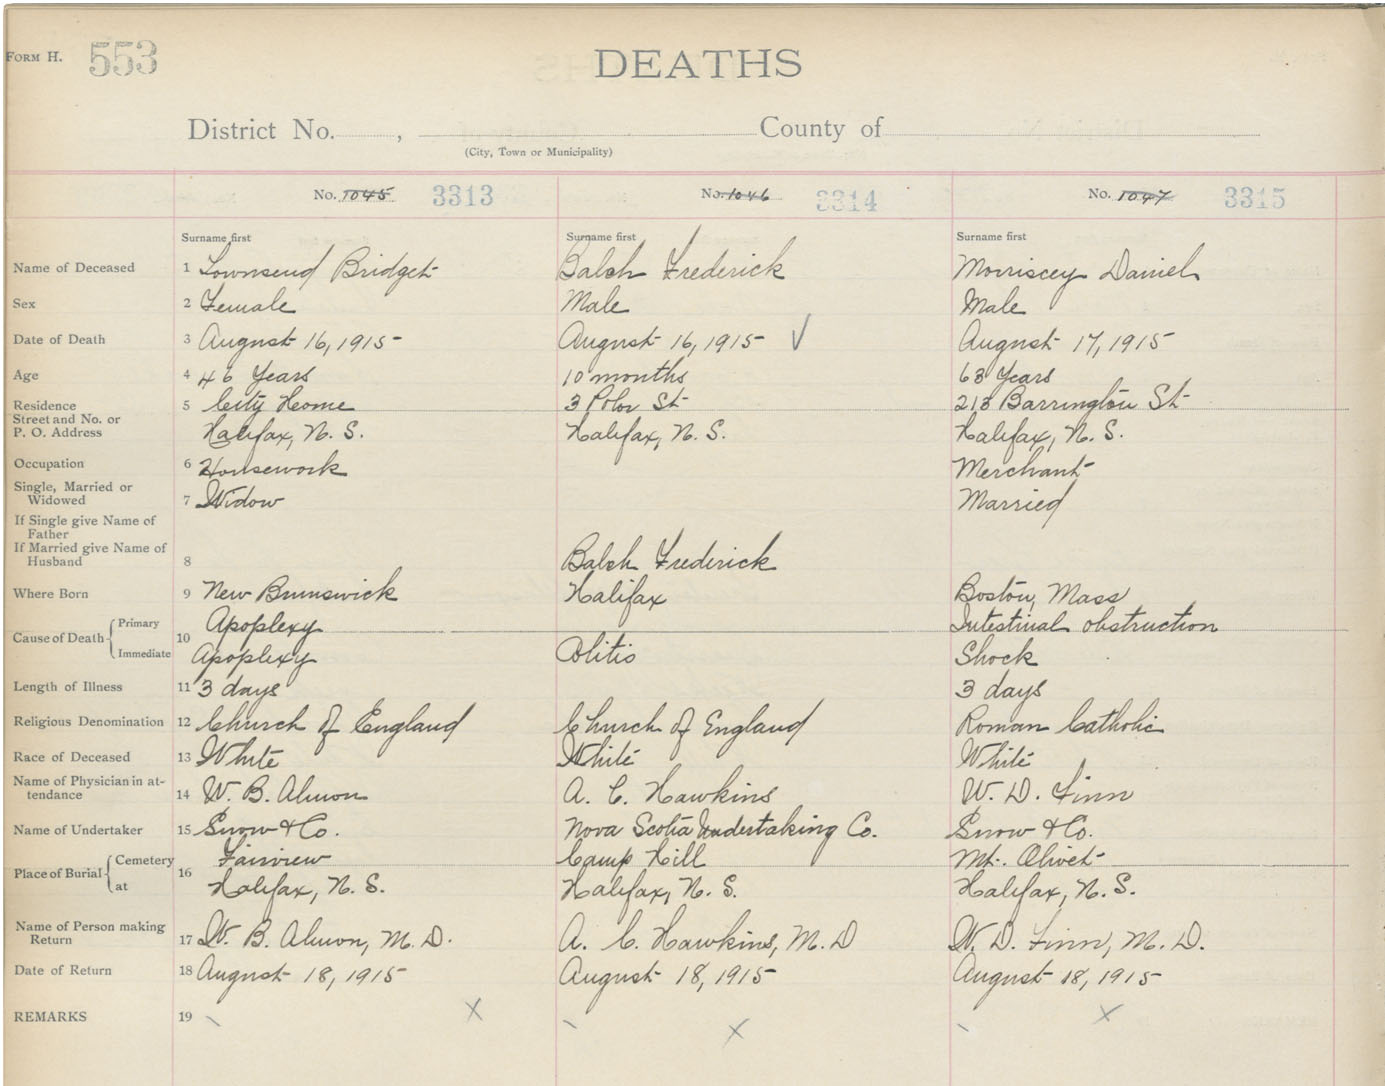 FORM H. 553
DEATHS
District No. , County of
(City, Town or Municipality)
No. 1045 3313 No. 1046 3314 No. 1047 3315
Surname first Surname first Surname first
Name of Deceased 1 Townsend Bridget Balch Frederick Morriscey Daniel
Sex 2 Female Male Male
Date of Death 3 August 16, 1915 August 16, 1915 ✓ August 17, 1915
Age 4 46 Years 10 months 63 Years
Residence 5 City Home 3 St 213 Barrington St
Street and No. or
P. O. Address Halifax, N. S. Halifax, N. S. Halifax, N. S.
Occupation 6 Housework Merchant
Single, Married or
Widowed 7 Widow Married
If Single give Name of
Father
If Married give Name of
Husband 8 Balch Frederick
Where Born 9 New Brunswick Halifax Boston, Mass
Cause of Death Primary 10 Apoplexy Intestinal obstruction
Immediate Apoplexy Colitis Shock
Length of Illness 11 3 days 3 days
Religious Denomination 12 Church of England Church of England Roman Catholic
Race of Deceased 13 White White White
Name of Physician in at-
tendance 14 W. B. Almon A. C. Hawkins W. D. Finn
Name of Undertaker 15 Snow & Co. Nova Scotia Undertaking Co. Snow & Co.
Place of Burial Cemetery 16 Fairview Camp Hill Mt. Olivet
at Halifax, N. S. Halifax, N. S. Halifax, N. S.
Name of Person making
Return 17 W. B. Almon, M. D. A. C. Hawkins, M. D W. D. Finn, M. D.
Date of Return 18 August 18, 1915 August 18, 1915 August 18, 1915
REMARKS 19 \ X \ X \ X